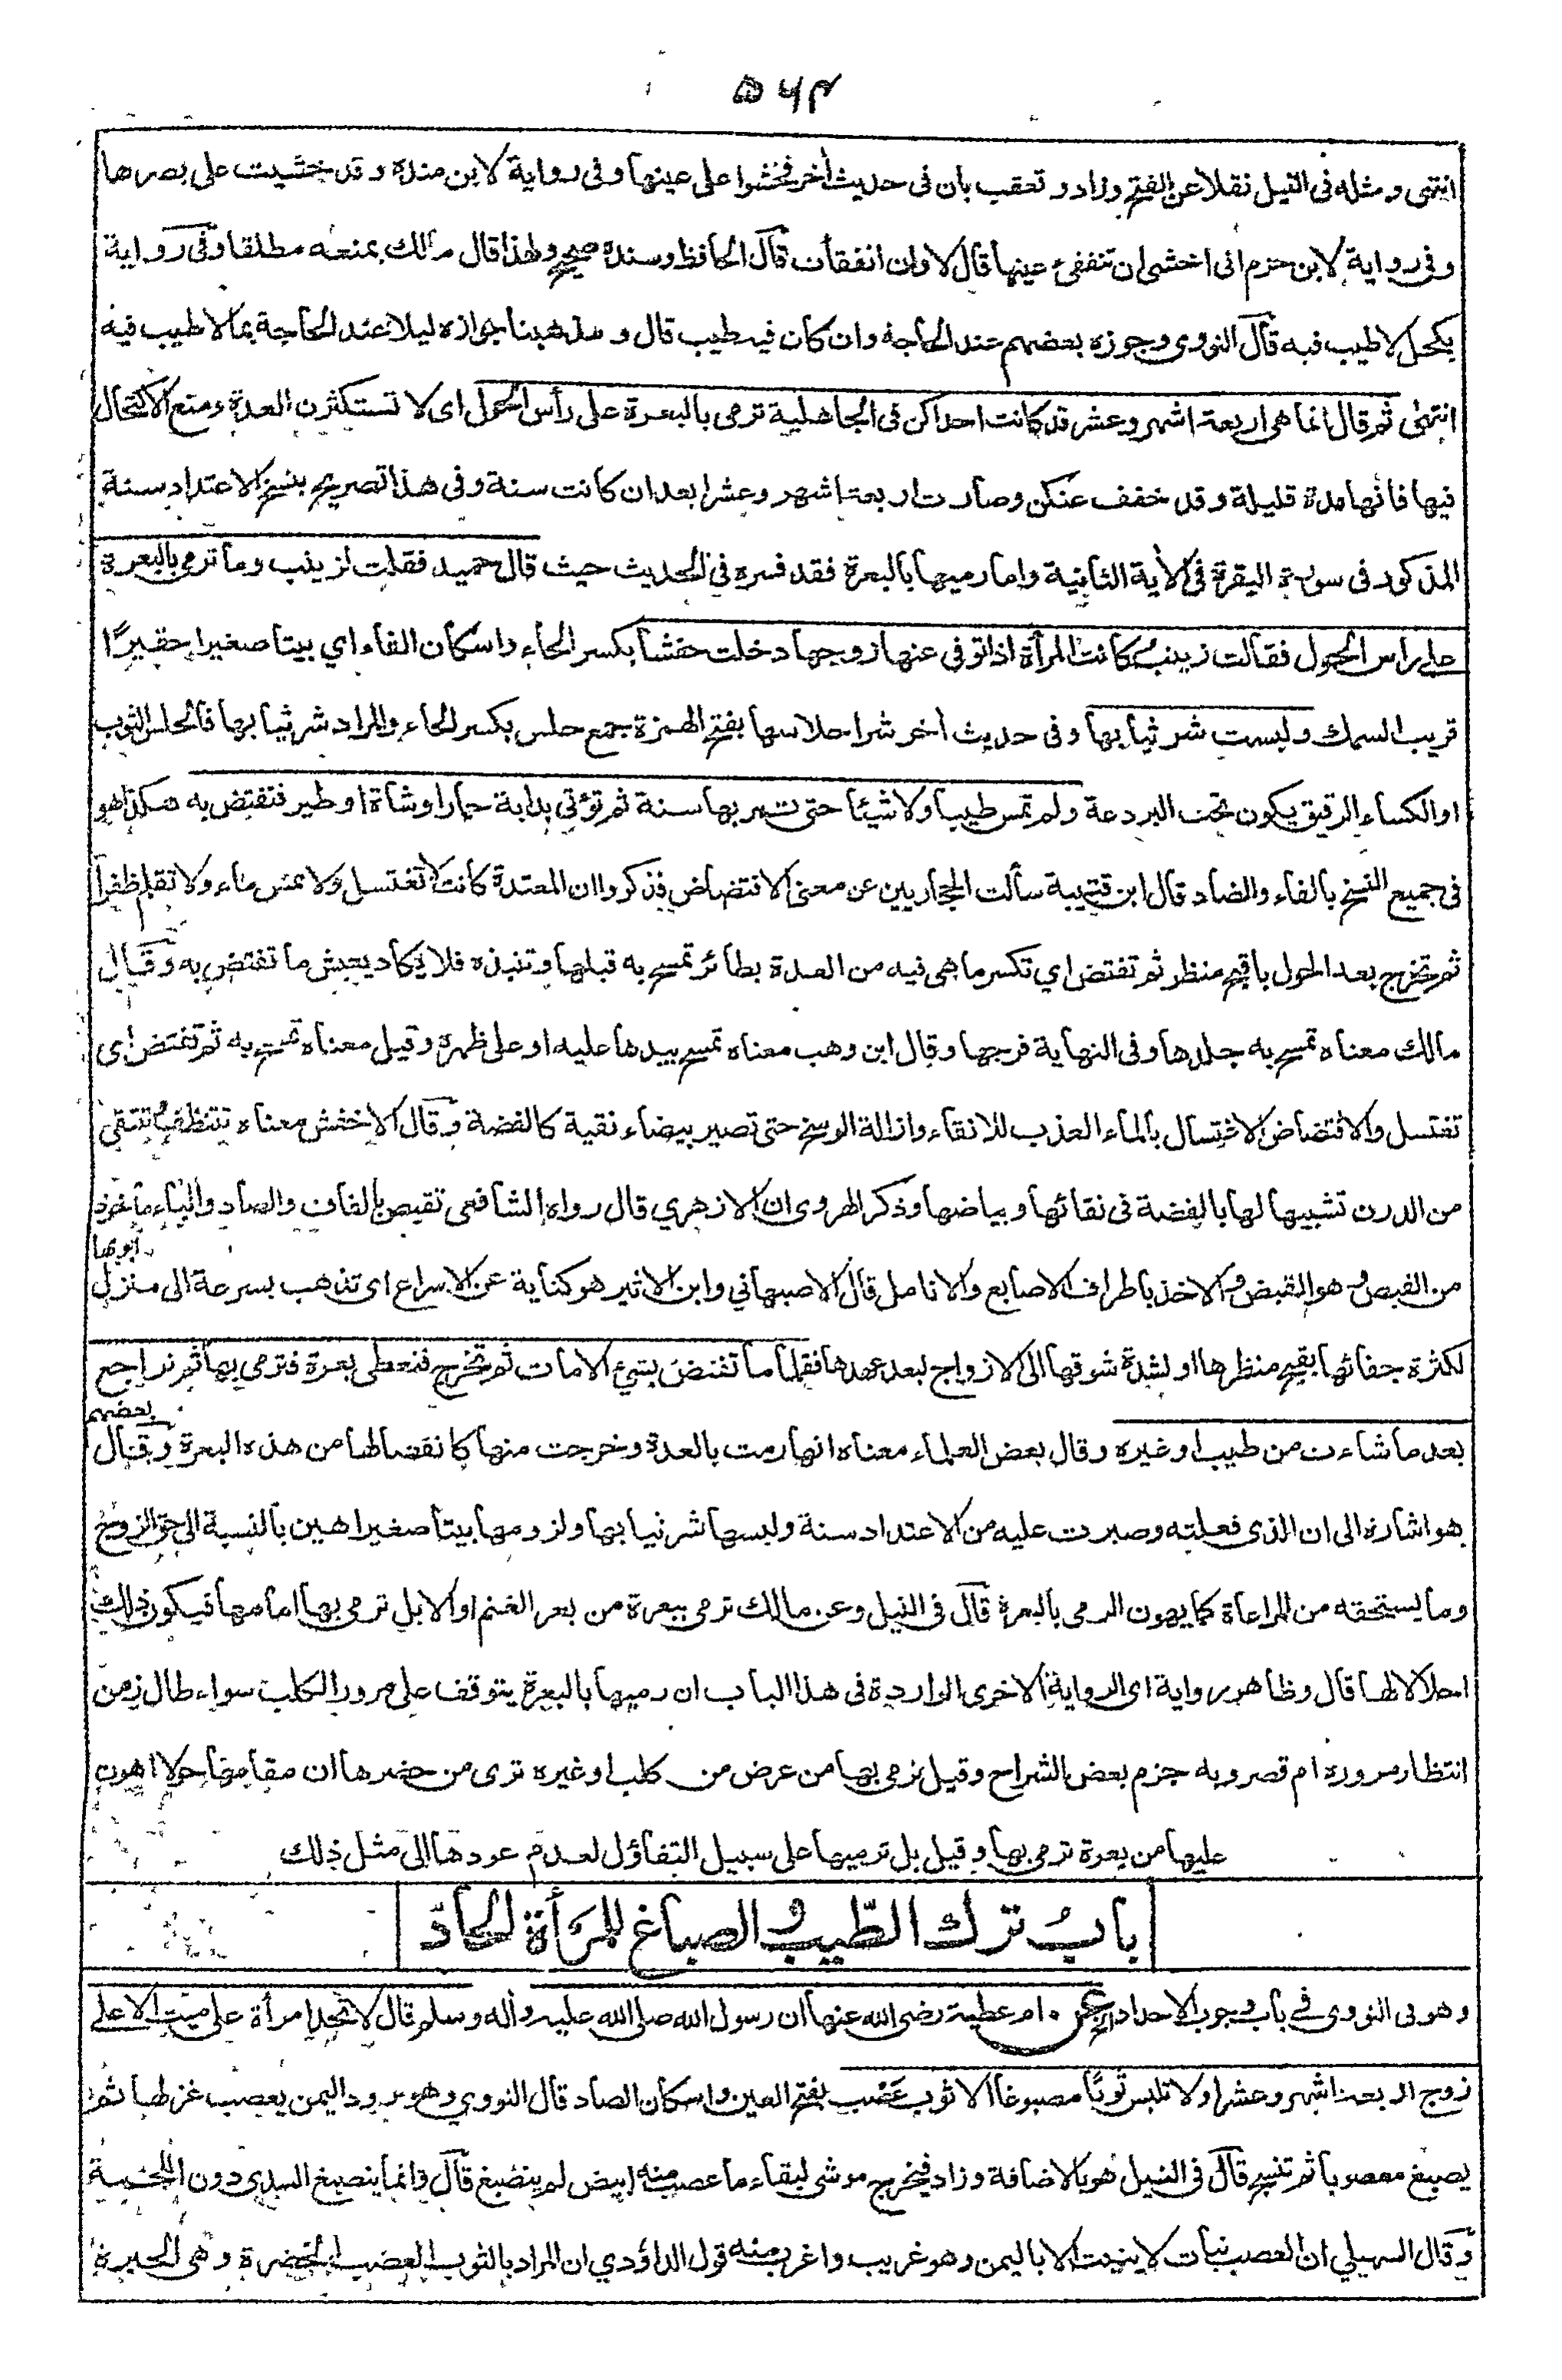 ۵۶۳
انتهى ومثله فى النيل نقلا عن الفتح وزاد وتعقب بان فى حديث أخر فخشوا على عينها وفى رواية لابن مندة وقد خشيت على بصرها
وفى رواية لابن حزم انى اخشى ان تنفقئ عينها قال لا وان انفقأت قال الحافظ وسنده صحيح ولهذا قال مالك بمنعه مطلقا وفى رواية
بكحل لا طيب فيه قال النووى وجوزه بعضهم عند الحاجة وان كان فيه طيب قال ومذهبنا جوازه ليلا عند الحاجة بما لا طيب فيه
انتهى ثم قال انما هى اربعة اشهر وعشر قد كانت احداكن فى الجاهلية ترمى بالبعرة على رأس الحول اى لا تستكثرن العدة ومنع الاكتحال
فيها فانها مدة قليلة وقد خفف عنكن وصارت اربعة اشهر وعشرا بعد ان كانت سنة وفى هذا تصريح بنسخ الاعتداد سنة
المذكور فى سورة البقرة فى الأية الثانية واما رميها بالبعرة فقد فسره فى الحديث حيث قال حميد فقلت لزينب وما ترمى بالبعرة
على راس الحول فقالت زينب كانت المرأة اذا توفى عنها زوجها دخلت حفشا بكسر الحاء واسكان الفاء اي بيتا صغيرا حقيرًا
قريب السمك ولبست شر ثيابها وفى حديث أخر شر احلاسها بفتح الهمزة جمع حلس بكسر الحاء والمراد شر ثيابها فالحلس الثوب
او الكساء الرقيق يكون تحت البردعة ولم تمس طيبا ولا شيئا حتى تمر بها سنة ثم تؤتى بدابة حمار او شاة او طير فتفتض به هكذا هو
فى جميع النسخ بالفاء والضاد قال ابن قتيبة سألت الحجازيين عن معنى الافتضاض فذكروا ان المعتدة كانت لا تغتسل ولا تمس ماء ولا تقلم ظفرا
ثم تخرج بعد الحول باقبح منظر ثم تفتض اي تكسر ما هى فيه من العدة بطائر تمسح به قبلها وتنبذه فلا يكاد يعيش ما تفتض به وقال
مالك معناه تمسح به جلدها وفى النهاية فرجها وقال ابن وهب معناه تمسح بيدها عليه او على ظهره وقيل معناه تمسح به ثم تفتض اى
تغتسل والافتضاض الاغتسال بالماء العذب للانقاء وازالة الوسخ حتى تصير بيضاء نقية كالفضة وقال الاخفش معناه تتنظف وتتنقى
من الدرن تشبيها لها بالفضة فى نقائها وبياضها وذكر الهروى ان الازهري قال رواه الشافعى تقبص بالقاف والصاد والباء ماخوذ
من القبص وهو القبض والاخذ باطراف الاصابع والانامل قال الاصبهاني وابن الاثير هو كناية عن الاسراع اى تذهب بسرعة الى منزل ابويها
لكثرة جفائها بقبح منظرها او لشدة شوقها الى الازواج لبعد عهدها فقلما ما تفتض بشئ الا مات ثم تخرج فتعطى بعرة فترمى بها ثم تراجع
بعد ما شاءت من طيب او غيره وقال بعض العلماء معناه انها رمت بالعدة وخرجت منها كانفصالها من هذه البعرة وقال بعضهم
هو اشارة الى ان الذى فعلته وصبرت عليه من الاعتداد سنة ولبسها شر ثيابها ولزومها بيتا صغيرا هين بالنسبة الى حق الزوج
وما يستحقه من المراعاة كما يهون الرمى بالبعرة قال فى النيل وعن مالك ترمى ببعرة من بعر الغنم او الابل ترمى بها امامها فيكون ذلك
احلالا لها قال وظاهر رواية اى الرواية الاخرى الواردة فى هذا الباب ان رميها بالبعرة يتوقف على مرور الكلب سواء طال زمن
انتظار مروره ام قصر وبه جزم بعض الشراح وقيل ترمى بها من عرض من كلب او غيره ترى من حضرها ان مقامها حولا اهون
عليها من بعرة ترمى بها وقيل بل ترميها على سبيل التفاؤل لعدم عودها الى مثل ذلك
بابُ ترك الطّيب والصباغ للمرأة الحادّ
وهو فى النووى فى باب وجوب الاحداد الخ عن ام عطية رضى الله عنها ان رسول الله صلى الله عليه وأله وسلم قال لا تحد امرأة على ميت الا على
زوج اربعة اشهر وعشرا ولا تلبس ثوبًا مصبوغا الا ثوب عَصْب بفتح العين واسكان الصاد قال النووي وهو برود اليمن يعصب غزلها ثم
يصبغ معصوبا ثم تنسج قال فى النيل هو بالاضافة وزاد فيخرج موشى لبقاء ما عصب منه ابيض لم ينصبغ قال وانما ينصبغ السدى دون اللحمة
وقال السهيلي ان العصب نبات لا ينبت الا باليمن وهو غريب واغرب منه قول الداؤدي ان المراد بالثوب العصب الخضرة وهى الحبرة